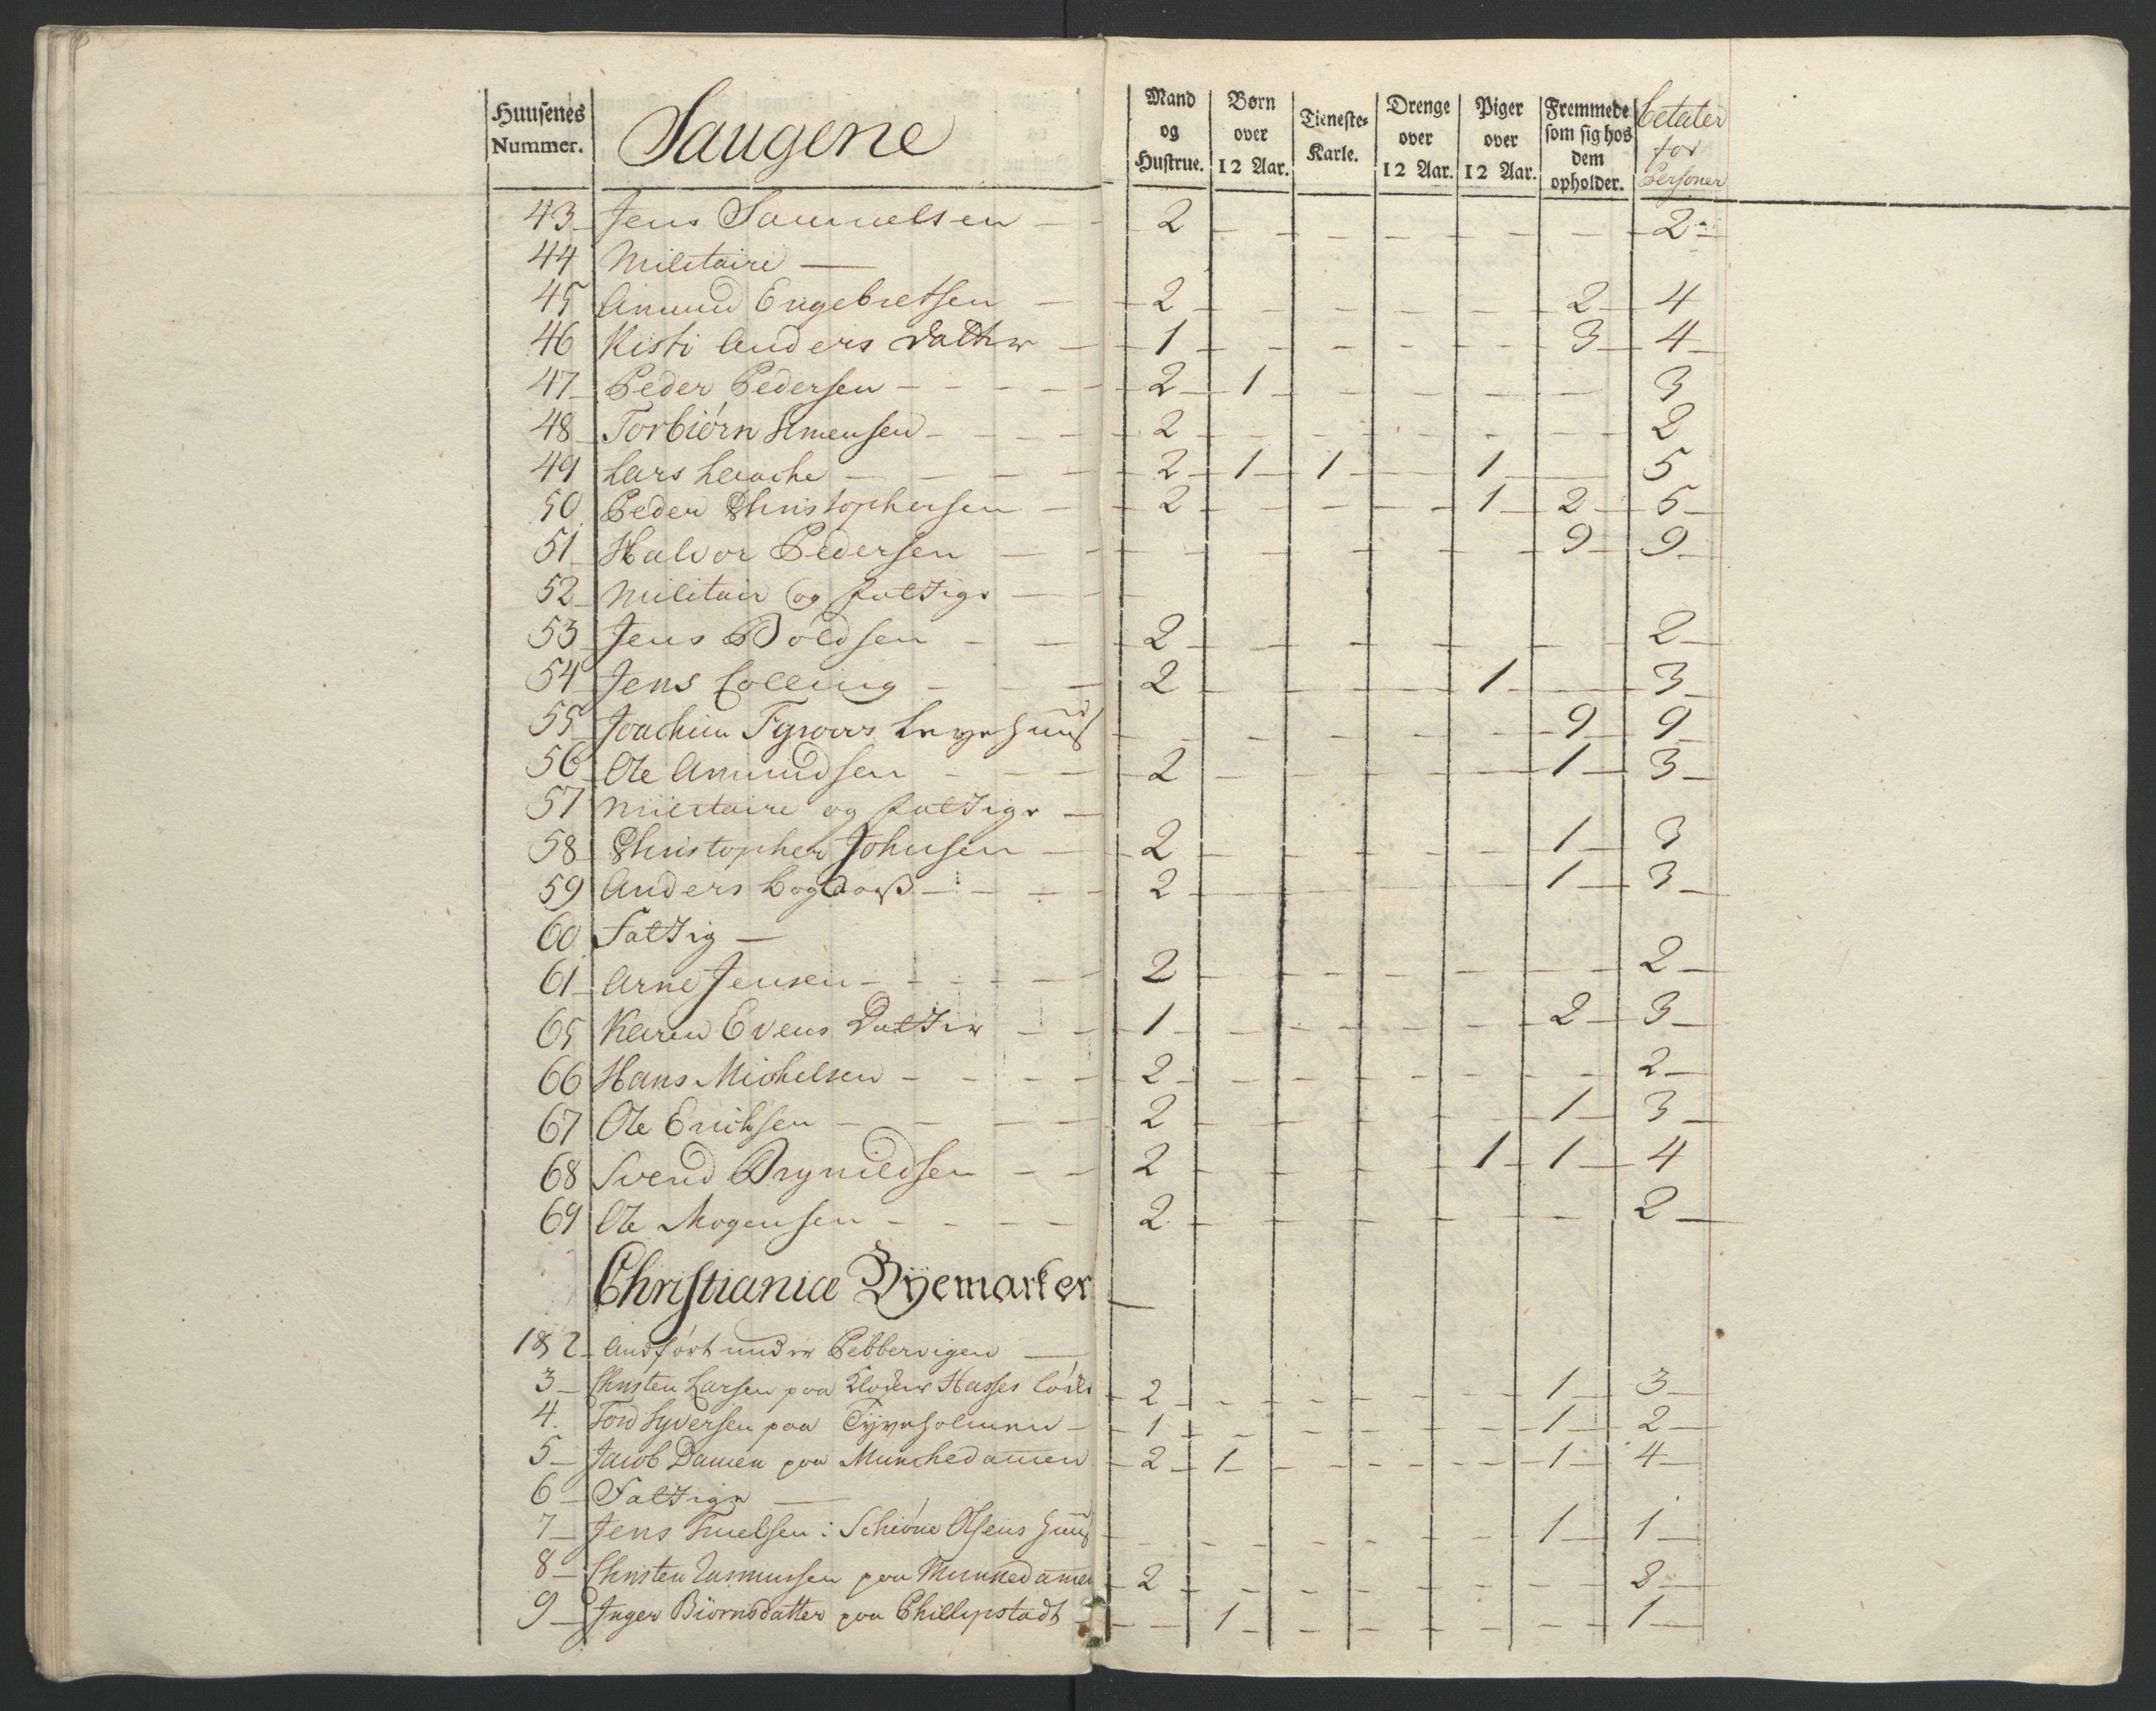 Huusenes Nummer. Saugene Mand og Hustrue. Børn over 12 Aar. Tieneste-Karle. Drenge over 12 Aar. Piger over 12 Aar. Fremmede som sig hos dem opholder. betaler for Personer
43 Jens Samuelsen — 2 — — — — — 2
44 Militaire —
45 Amund Engebretsen — 2 — — — — 2 4
46 Kisti Anders datter — 1 — — — — 3 4
47 Peder Pedersen — 2 1 — — — — 3
48 Torbiörn Simensen — 2 — — — — — 2
49 Lars Laache — 2 1 1 — 1 — 5
50 Peder Christophersen — 2 — — — 1 2 5
51 Halvor Pedersen — — — — — — 9 9
52 Militair og fattige —
53 Jens Boldsen — 2 — — — — — 2
54 Jens Colling — 2 — — — 1 — 3
55 Joachim Leye Huus — — — — — 9 9
56 Ole Amundsen — 2 — — — — 1 3
57 Militaire og fattige —
58 Christopher Johnsen — 2 — — — — 1 3
59 Anders — 2 — — — — 1 3
60 Fattig —
61 Arne Jensen — 2 — — — — — 2
65 Karen Evens Datter — 1 — — — — 2 3
66 Hans Michelsen — 2 — — — — — 2
67 Ole Erichsen — 2 — — — — 1 3
68 Svend Brynildsen — 2 — — — 1 1 4
69 Ole Mogensen — 2 — — — — — 2
Christiania Byemarker —
1 & 2 Andført under Pebbervigen —
3 Christen Larsen paa Hasses Löke 2 — — — — 1 3
4. Tord Syversen paa Tyveholmen — 1 — — — — 1 2
5 Jacob Damen paa Munchedamen — 2 1 — — — 1 4
6 Fattige —
7 Jens Truelsen i Schiöne Olsens Huus — — — — — 1 1
8 Christen Rasmussen paa Munkedamen 2 — — — — — 2
9 Inger Biörnsdatter paa Phillipstadt — — 1 — — — — 1